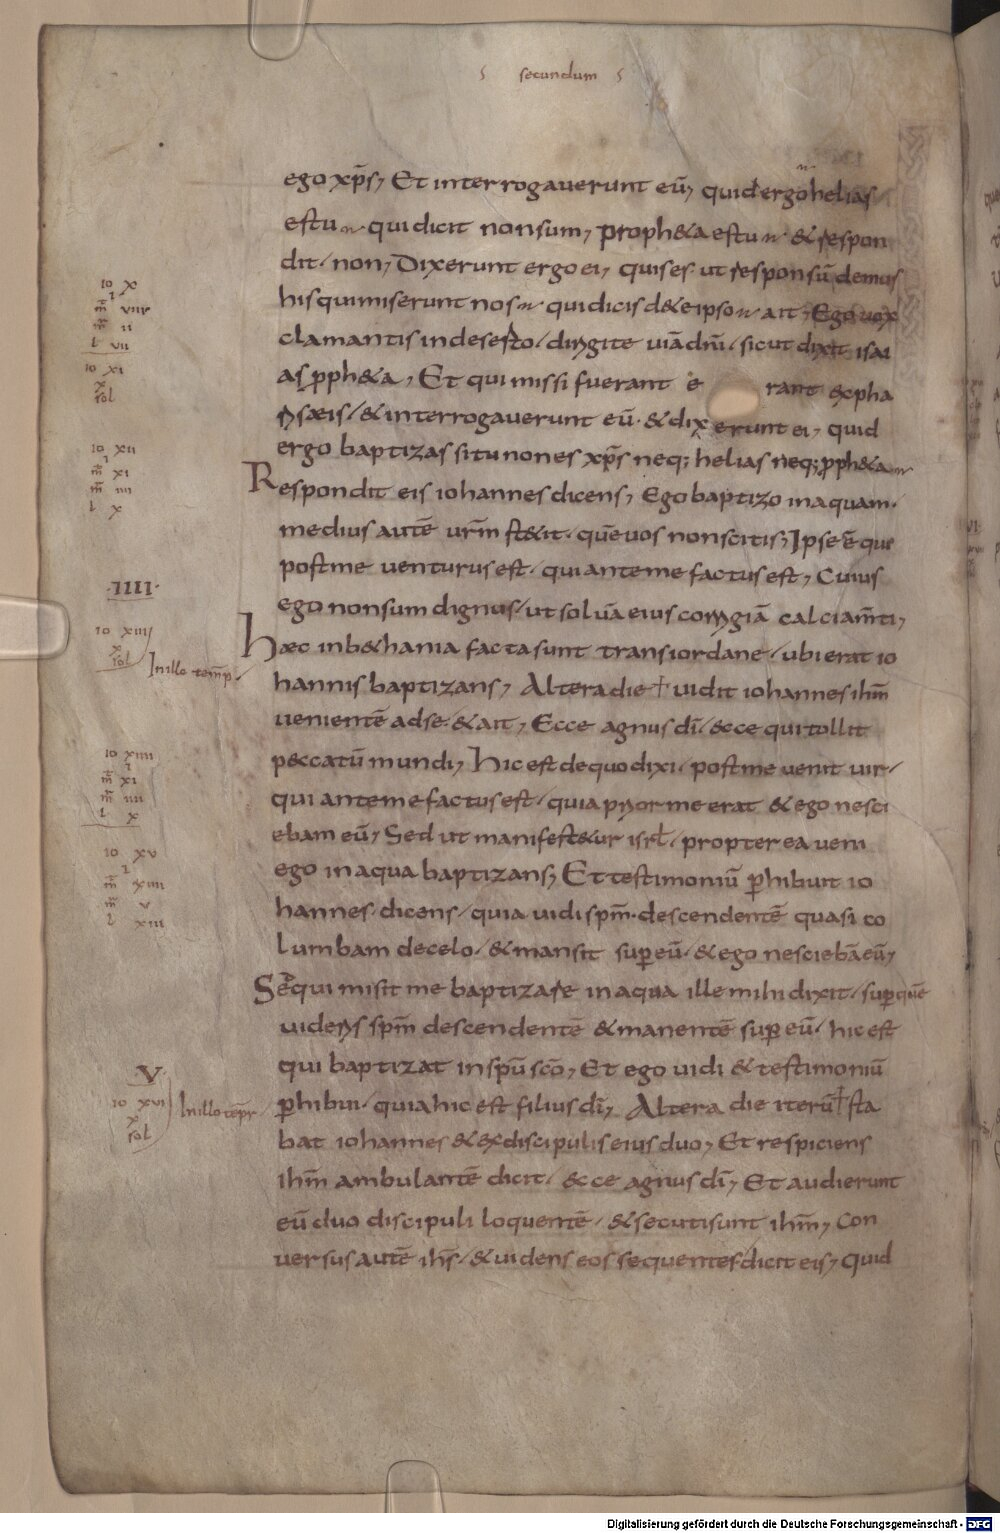 secundum
ego xp̄s, Et interrogauerunt eū, quid ergo helias
es tu qui dicit non sum, propheta es tu & respon
dit, non, Dixerunt ergo ei, quis es ut responsū demus
his qui miserunt nos qui dicis de te ipso ait, Ego uox
clamantis in deserto, dirigite uiā dn̄i, sicut dixit isai
as pph&a, Et qui missi fuerant e rant ex pha
risæis, & interrogauerunt eū & dixerunt ei, quid
ergo baptizas si tu non es xp̄s neq; helias neq; pph&a
Respondit eis iohannes dicens, Ego baptizo in aquam.
medius autē ur̄m st&it. quē uos non scitis, Ipse ē que
post me uenturus est. qui ante me factus est, Cuius
ego non sum dignus, ut soluā eius corrigiā calciam̄ti,
·IIII·
Hæc in b&hania facta sunt trans iordane, ubi erat io
In illo temp̄.
hannis baptizans, Altera die uidit iohannes ih̄m
uenientē ad se. & ait, Ecce agnus dī, &cce qui tollit
p&ccatū mundi, Hic est de quo dixi. post me uenit uir,
qui ante me factus est, quia prior me erat & ego nesci
ebam eū, Sed ut manifest&ur isrl, propterea ueni
ego in aqua baptizans, Et testimoniū phibuit io
hannes. dicens, quia uidi sp̄m. descendentē quasi co
lumbam de celo, & mansit sup eū, & ego nesciebā eū,
Sed qui misit me baptizare in aqua ille mihi dixit, sup quē
uideris sp̄m descendentē & manentē sup eū, hic est
qui baptizat in spū scō, Et ego uidi & testimoniū
V
In illo tēpr
phibui, quia hic est filius dī, Altera die iterū sta
bat iohannes & ex discipulis eius duo, Et respiciens
ih̄m ambulantē dicit, &cce agnus dī, Et audierunt
eū duo discipuli loquentē, & secuti sunt ih̄m, Con
uersus autē ih̄s, & uidens eos sequentes dicit eis, quid
io X
m̄ VIII
m̄ II
l VII
io XI
X
sol
io XII
m̄ XI
m̄ IIII
l X
io XIII
X
sol
io XIIII
m̄ XI
m̄ IIII
l X
io XV
m̄ XIIII
m̄ V
l XIII
io XVI
X
sol
Digitalisierung gefördert durch die Deutsche Forschungsgemeinschaft - DFG